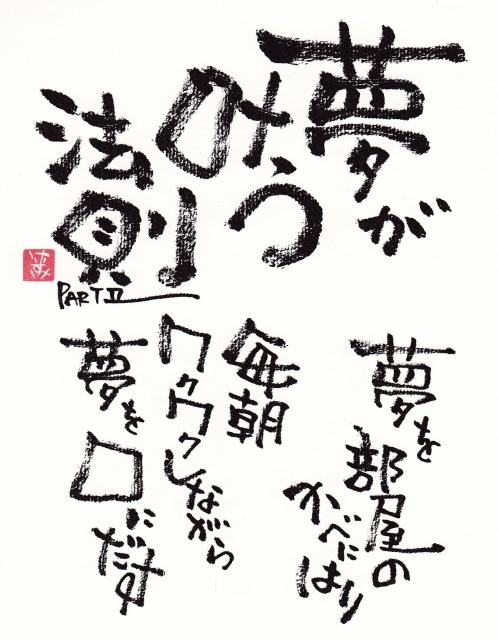 夢が
叶う
法則
PART II
夢を
部屋の
かべにはり
毎朝
ワクワク
しながら
夢を
口にだす